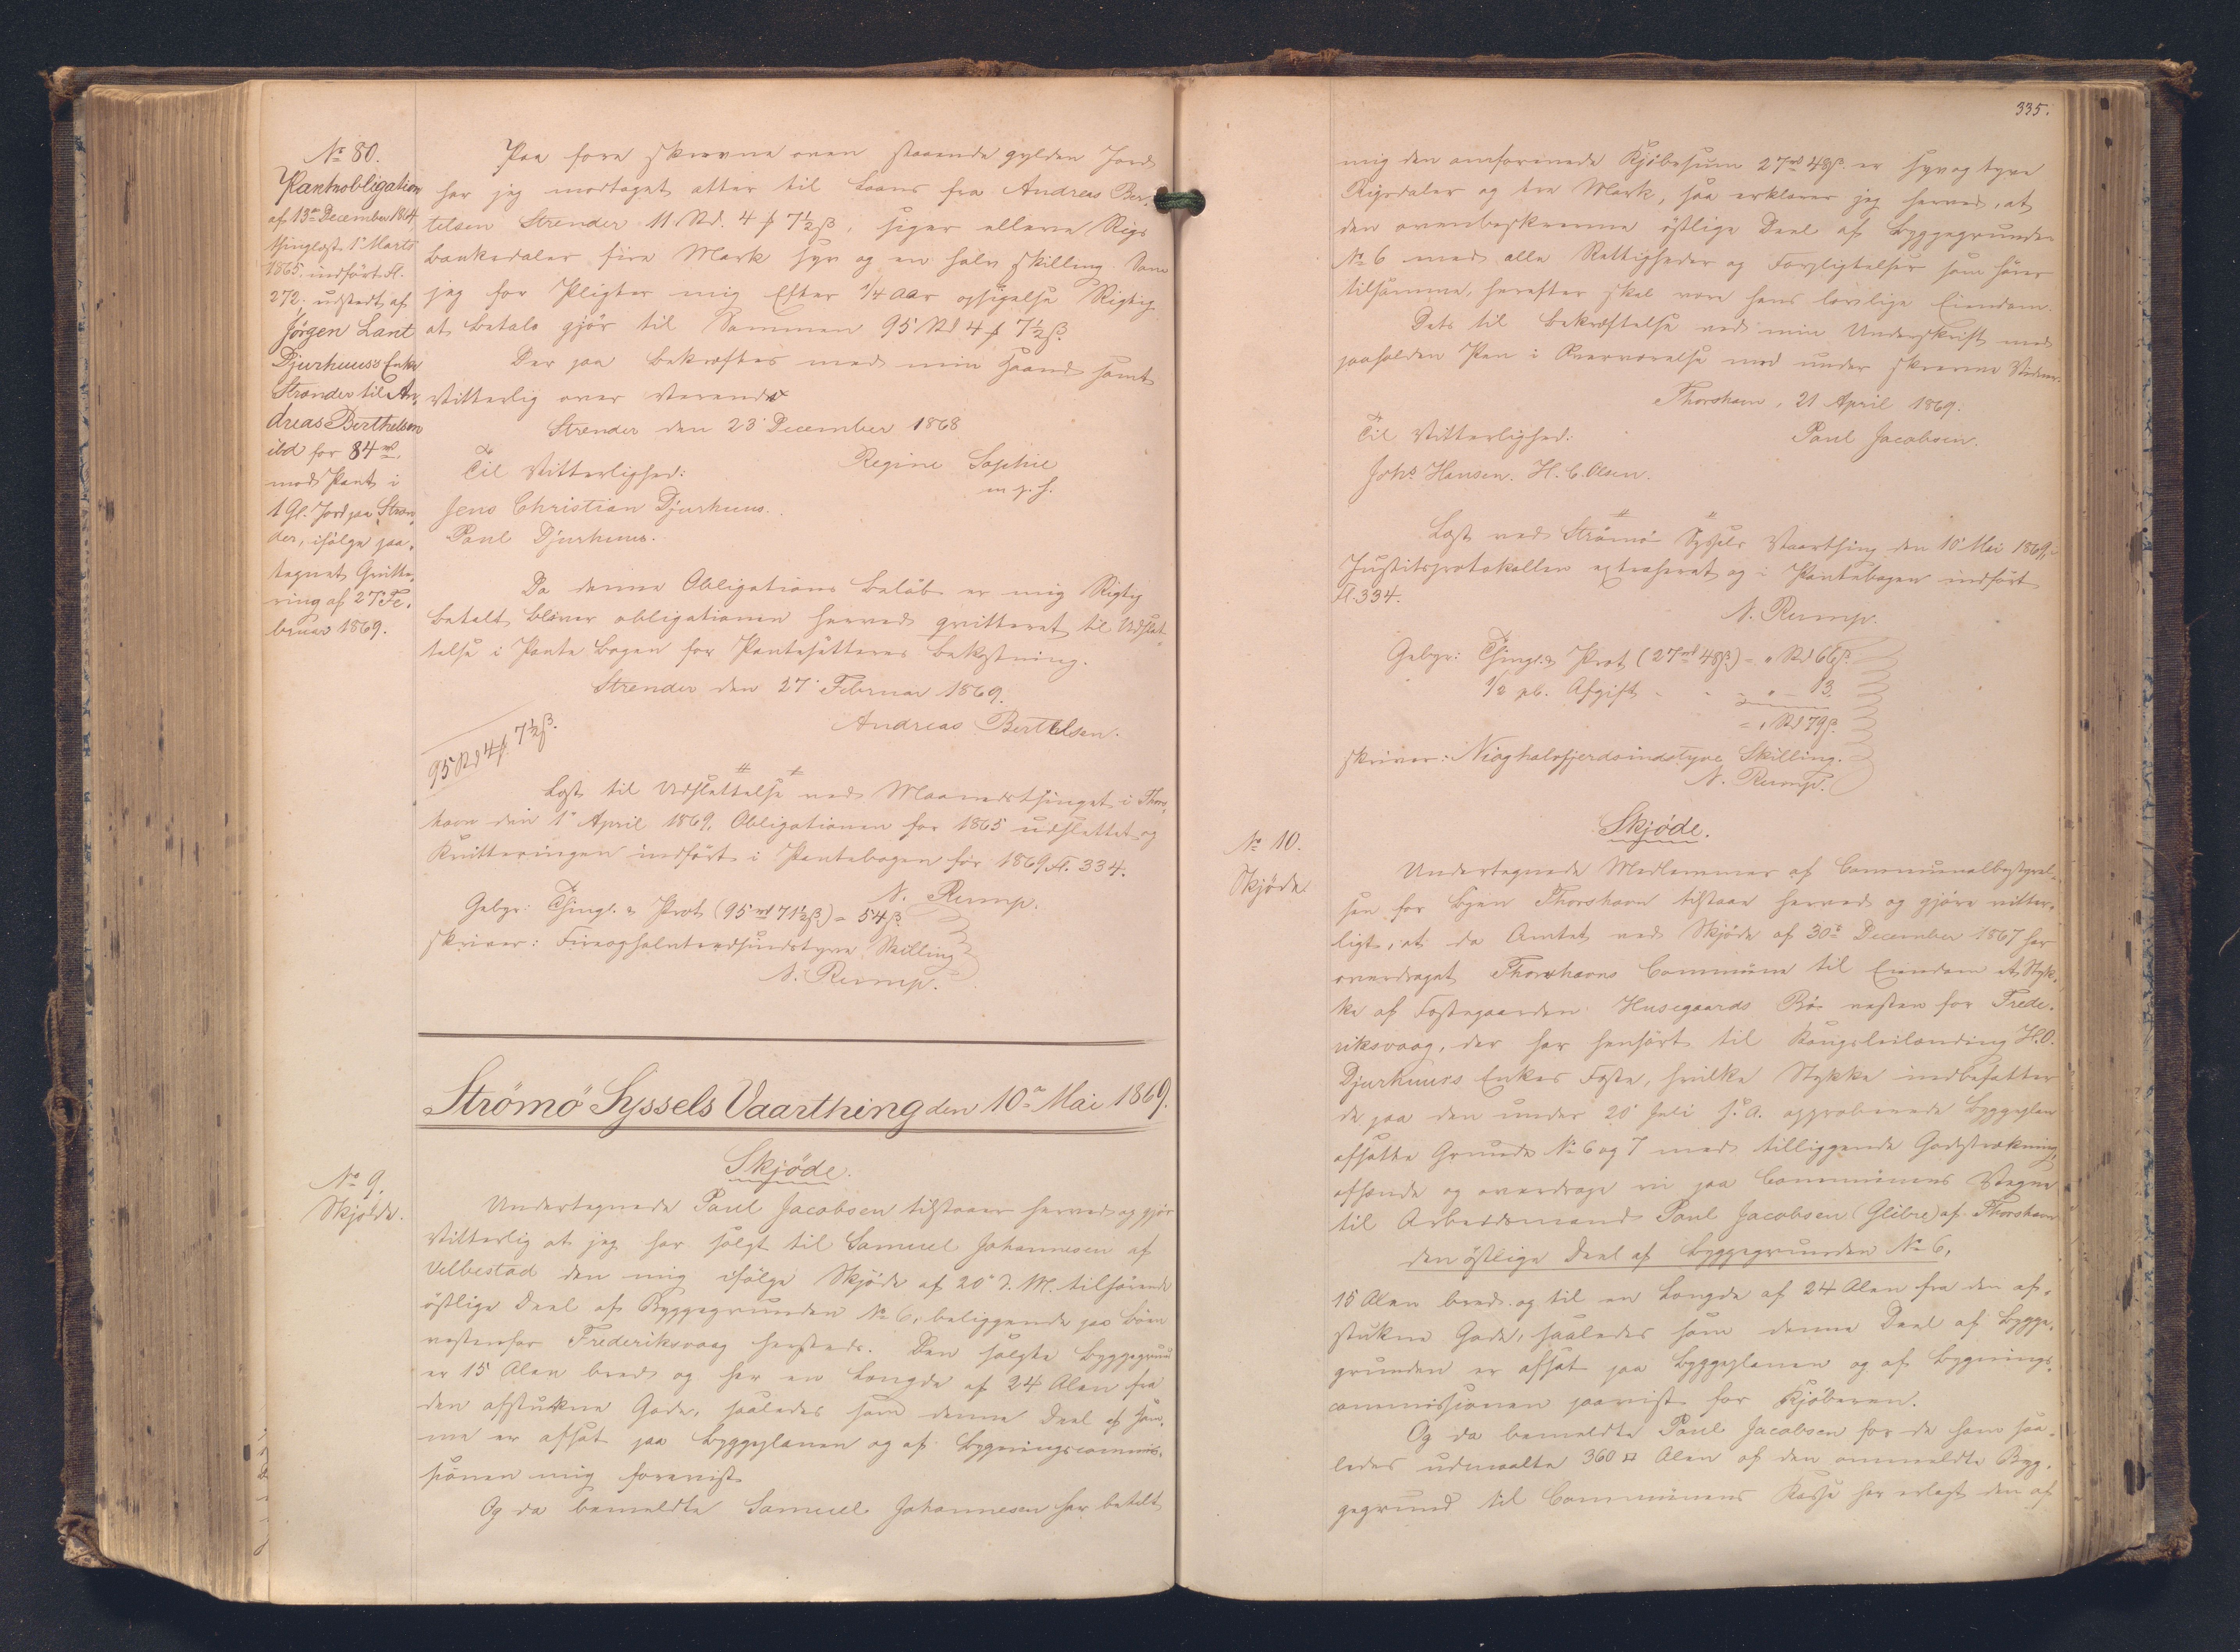 No 80.
Pantobligation
af 13de December 1864
thinglæst 1ste Marts
1865. indført Fl.
272. udstedt af
Jørgen Lant
Djurhuus's Enke
Strænder til An-
dreas Berthelsen
ibd for 84 rd.
mod Pant i
1 Gl. Jord paa Stræn-
der, ifølge paa-
tegnet Qvitte-
ring af 27de Fe-
bruar 1869.
Paa fore skrevne oven staaende gylden Jord
har jeg modtaget atter til Laans fra Andreas Ber-
telsen Strender 11 Rd. 4 ꝥ 7½ ß, siger elleve Rigs
bankedaler fire Mark syv og en halv skilling. Som
jeg for Pligter mig Efter 1/4 Aar opsigelse Rigtig
at betale gjør til Sammen 95 Rd 4 ꝥ 7½ ß.
Der paa bekræftes med min Haand samt
Vitterlig over Værende
Strender den 23de December 1868
Til Vitterlighed:
Regine Sophie
m. p. f.
Jens Christian Djurhuus.
Paul Djurhuus.
Da denne Obligations Beløb er mig Rigtig
betalt bliver obligationen herved qvitteret til Udslet
telse i Pante bogen for Pantesætteres bekostning.
Strender den 27de Februar 1869.
Andreas Berthelsen.
95 Rd 4 ꝥ 7½ ß.
Læst til Udslettelse ved Maanedsthinget i Thors-
havn den 1ste April 1869. Obligationen for 1865 udslettet og
Kvitteringen indført i Pantebogen for 1869 Fl. 334.
N. Rump.
Gebyr: Thingl. & Prot (95 rd 71½ ß) = 54 ß
skriver: Fireoghalvtredsindstyve Skilling
N. Rump.
Strömö Syssels Vaarthing den 10de Mai 1869.
No 9.
Skjøde.
Skjøde.
Undertegnede Paul Jacobsen tilstaaer herved og gjør
Vitterlig at jeg har solgt til Samuel Johannesen af
Velbestad den mig ifølge Skjøde af 20de d. M. tilhørende
östlige Deel af Byggegrunden No 6, beliggende paa Böen
vestenfor Frederiksvaag hersteds. Den solgte Byggegrund
er 15 Alen bred og har en Længde af 24 Alen fra
den afstukne Gade, saaledes som denne Deel af sam-
me er afsat paa Byggeplanen og af Bygningscommis-
sionen mig foreviist.
Og da bemeldte Samuel Johannesen har betalt
335.
mig den omforenede Kjöbesum 27 rd 48 ß er syv og tyve
Rigsdaler og tre Mark, saa erklærer jeg herved, at
den ovenbeskrevne östlige Deel af Byggegrunden
No 6 med alle Rettigheder og Forpligtelser som hører
tilsamme, herefter skal være hans lovlige Eiendom.
Dets til Bekræftelse ved min Underskrift med
paaholden Pen i Overværelse med under skrevne Vidner.
Thorshavn, 21 April 1869.
Til Vitterlighed:
Paul Jacobsen.
Johs Hansen. H. C. Olsen.
Læst ved Strömö Syssels Vaarthing den 10de Mai 1869, i
Justitsprotokollen extraheret og i Pantebogen indført
Fl. 334.
N. Rump.
Gebyr: Thingl. & Prot (27 rd 48 ß) = " Rd 66 ß.
½ pC. Afgift - - = " - 13.
= " Rd 79 ß.
skriver: Nioghalvfjerdsindstyve Skilling.
N. Rump.
No 10.
Skjøde
Skjøde.
Undertegnede Medlemmer af Communalbestyrel-
sen for Byen Thorshavn tilstaae herved og gjöre vitter-
ligt, at da Amtet ved Skjøde af 30te December 1867 har
overdraget Thorshavns Commune til Eiendom et Styk-
ke af Fæstegaarden Husegaards Bö vesten for Frede-
riksvaag, der har henhørt til Kongsleilænding H. O.
Djurhuus's Enkes Fæste, hvilke Stykke indbefatter
de paa den under 20de Juli s. A. approberede Byggeplan
afsatte Grunde No 6 og 7 med tilliggende Gadestrækning,
afhænde og overdrage vi paa Communens Vegne
til Arbeidsmand Paul Jacobsen (Glibre) af Thorshavn
den östlige Deel af Byggegrunden No 6,
15 Alen bred og til en Længde af 24 Alen fra den af-
stukne Gade, saaledes som denne Deel af Bygge-
grunden er afsat paa Byggeplanen og af Bygnings-
commissionen paaviist for Kjöberen.
Og da bemeldte Paul Jacobsen for de ham saa-
ledes udmaalte 360 □ Alen af den ommeldte Byg-
gegrund til Communens Kasse har erlagt den af